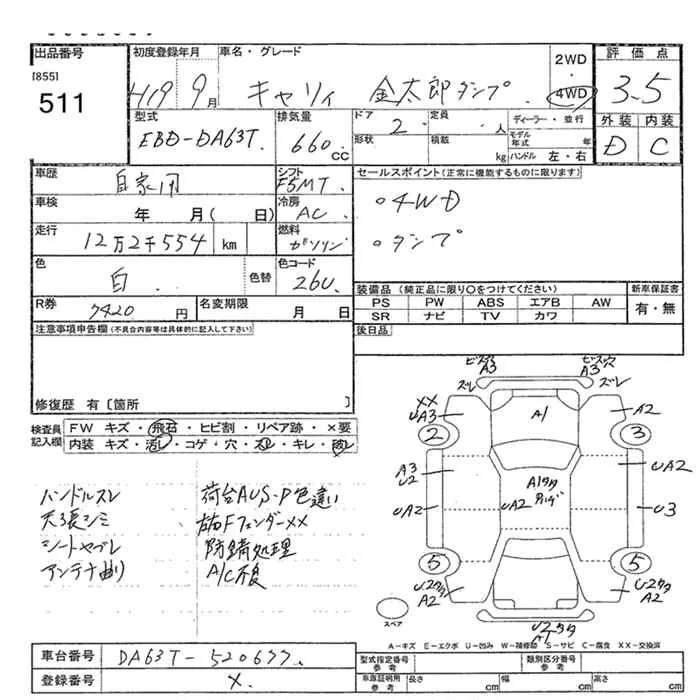 出品番号
[855]
511
初度登録年月
H19 9月
車名・グレード
キャリィ 金太郎ダンプ
2WD
4WD
評価点
3.5
外装 内装
D C
型式
EBD-DA63T
排気量
660 CC
ドア 2
形状
定員 人
積載 kg
ディーラー・並行
モデル年式 年
ハンドル 左・右
車歴
自家用
シフト
F5MT
車検 年 月( 日)
冷房
AC
走行
12万2千554 km
燃料
ガソリン
色
白
色替
色コード
26U
R券
7420 円
名変期限 月 日
セールスポイント(正常に機能するものに限ります)
○4WD
○ダンプ
装備品 (純正品に限り○をつけてください)
PS PW ABS エアB AW
SR ナビ TV カワ
新車保証書
有・無
後日品
注意事項申告欄(不具合内容等は具体的に記入して下さい)
修復歴 有 [箇所 ]
検査員記入欄
FW キズ・飛石・ヒビ割・リペア跡・×要
内装 キズ・汚レ・コゲ・穴・スレ・キレ・破レ
ハンドルスレ
天張シミ
シートヤブレ
アンテナ曲り
荷台AUS・P色違い
左右Fフェンダー××
防錆処理
A/C不良
A3
ズレ
A3
ズレ
XX
UA3
A1
A2
2
3
A3
U2
UA2
UA2
UA2
U3
5
5
U2タタ
A2
U2タタ
A2
スペア
U2タタ
A1
A-キズ E-エクボ U-凹み W-補修跡 S-サビ C-腐食 XX-交換済
車台番号
DA63T-520677
登録番号
×
型式指定番号 参考
類別区分番号 参考
車庫証明用 参考
長さ cm
幅 cm
高さ cm